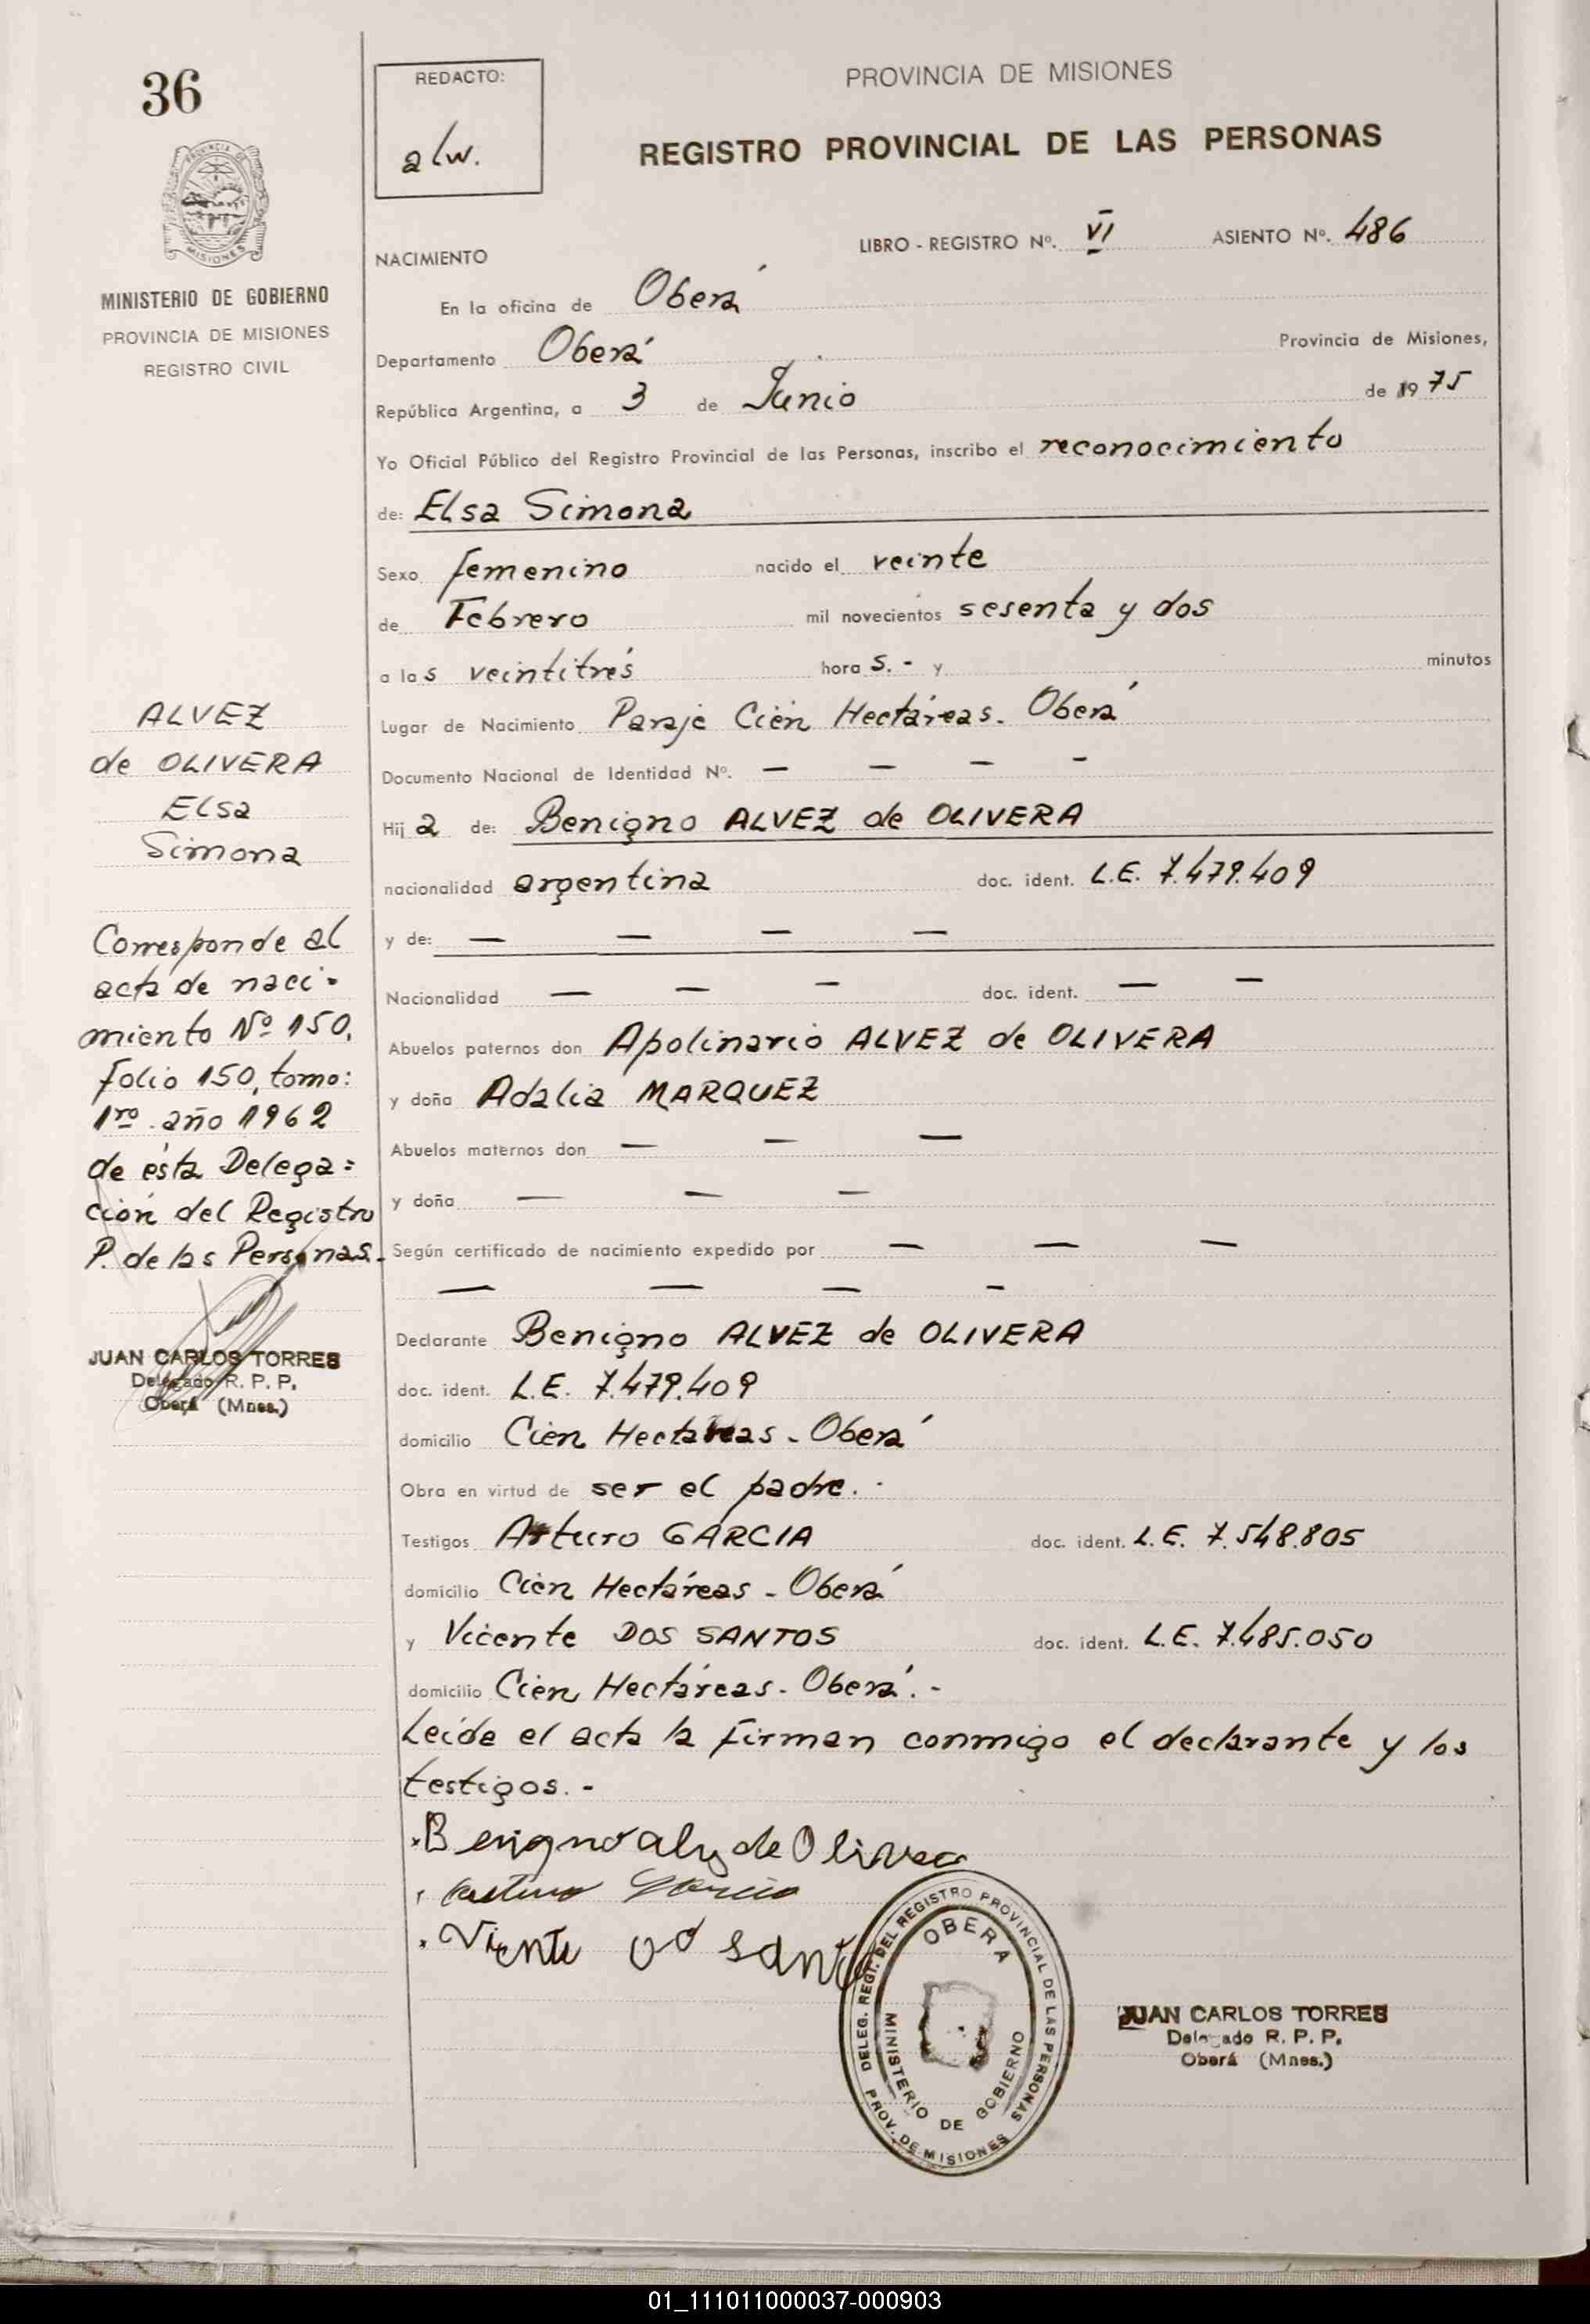 36
REDACTO:
alw.
PROVINCIA DE MISIONES
REGISTRO PROVINCIAL DE LAS PERSONAS
PROVINCIA DE
MISIONES
MINISTERIO DE GOBIERNO
PROVINCIA DE MISIONES
REGISTRO CIVIL
LIBRO - REGISTRO Nº. VI ASIENTO Nº. 486
NACIMIENTO
En la oficina de Oberá
Departamento Oberá Provincia de Misiones,
República Argentina, a 3 de Junio de 1975
Yo Oficial Público del Registro Provincial de las Personas, inscribo el reconocimiento
de: Elsa Simona
Sexo femenino nacido el veinte
de Febrero mil novecientos sesenta y dos
a las veintitrés horas.- y minutos
Lugar de Nacimiento Paraje Cien Hectáreas. Oberá
Documento Nacional de Identidad Nº. — — — -
Hija de: Benigno ALVEZ de OLIVERA
nacionalidad argentina doc. ident. L.E. 7.479.409
y de: — — — —
Nacionalidad — — — doc. ident. — —
Abuelos paternos don Apolinario ALVEZ de OLIVERA
y doña Adalia MARQUEZ
Abuelos maternos don — — —
y doña — — —
Según certificado de nacimiento expedido por — — —
— — — -
Declarante Benigno ALVEZ de OLIVERA
doc. ident. L.E. 7.479.409
domicilio Cien Hectáreas - Oberá
Obra en virtud de ser el padre.-
Testigos Arturo GARCIA doc. ident. L.E. 7.548.805
domicilio Cien Hectáreas - Oberá
y Vicente DOS SANTOS doc. ident. L.E. 7.485.050
domicilio Cien Hectáreas - Oberá.-
Leida el acta la firman conmigo el declarante y los
testigos.-
ALVEZ
de OLIVERA
Elsa
Simona
Corresponde al
acta de naci-
miento Nº 150,
folio 150, tomo:
1ro. año 1962
de ésta Delega=
ción del Registro
P. de las Personas.-
JUAN CARLOS TORRES
Delegado R. P. P.
Oberá (Mnes.)
Benigno alv de Olivea
Arturo Garcia
Viente do santo
DELEG. REGI. DEL REGISTRO PROVINCIAL DE LAS PERSONAS
OBERA
MINISTERIO DE GOBIERNO
PROV. DE MISIONES
JUAN CARLOS TORRES
Delegado R. P. P.
Oberá (Mnes.)
01_111011000037-000903